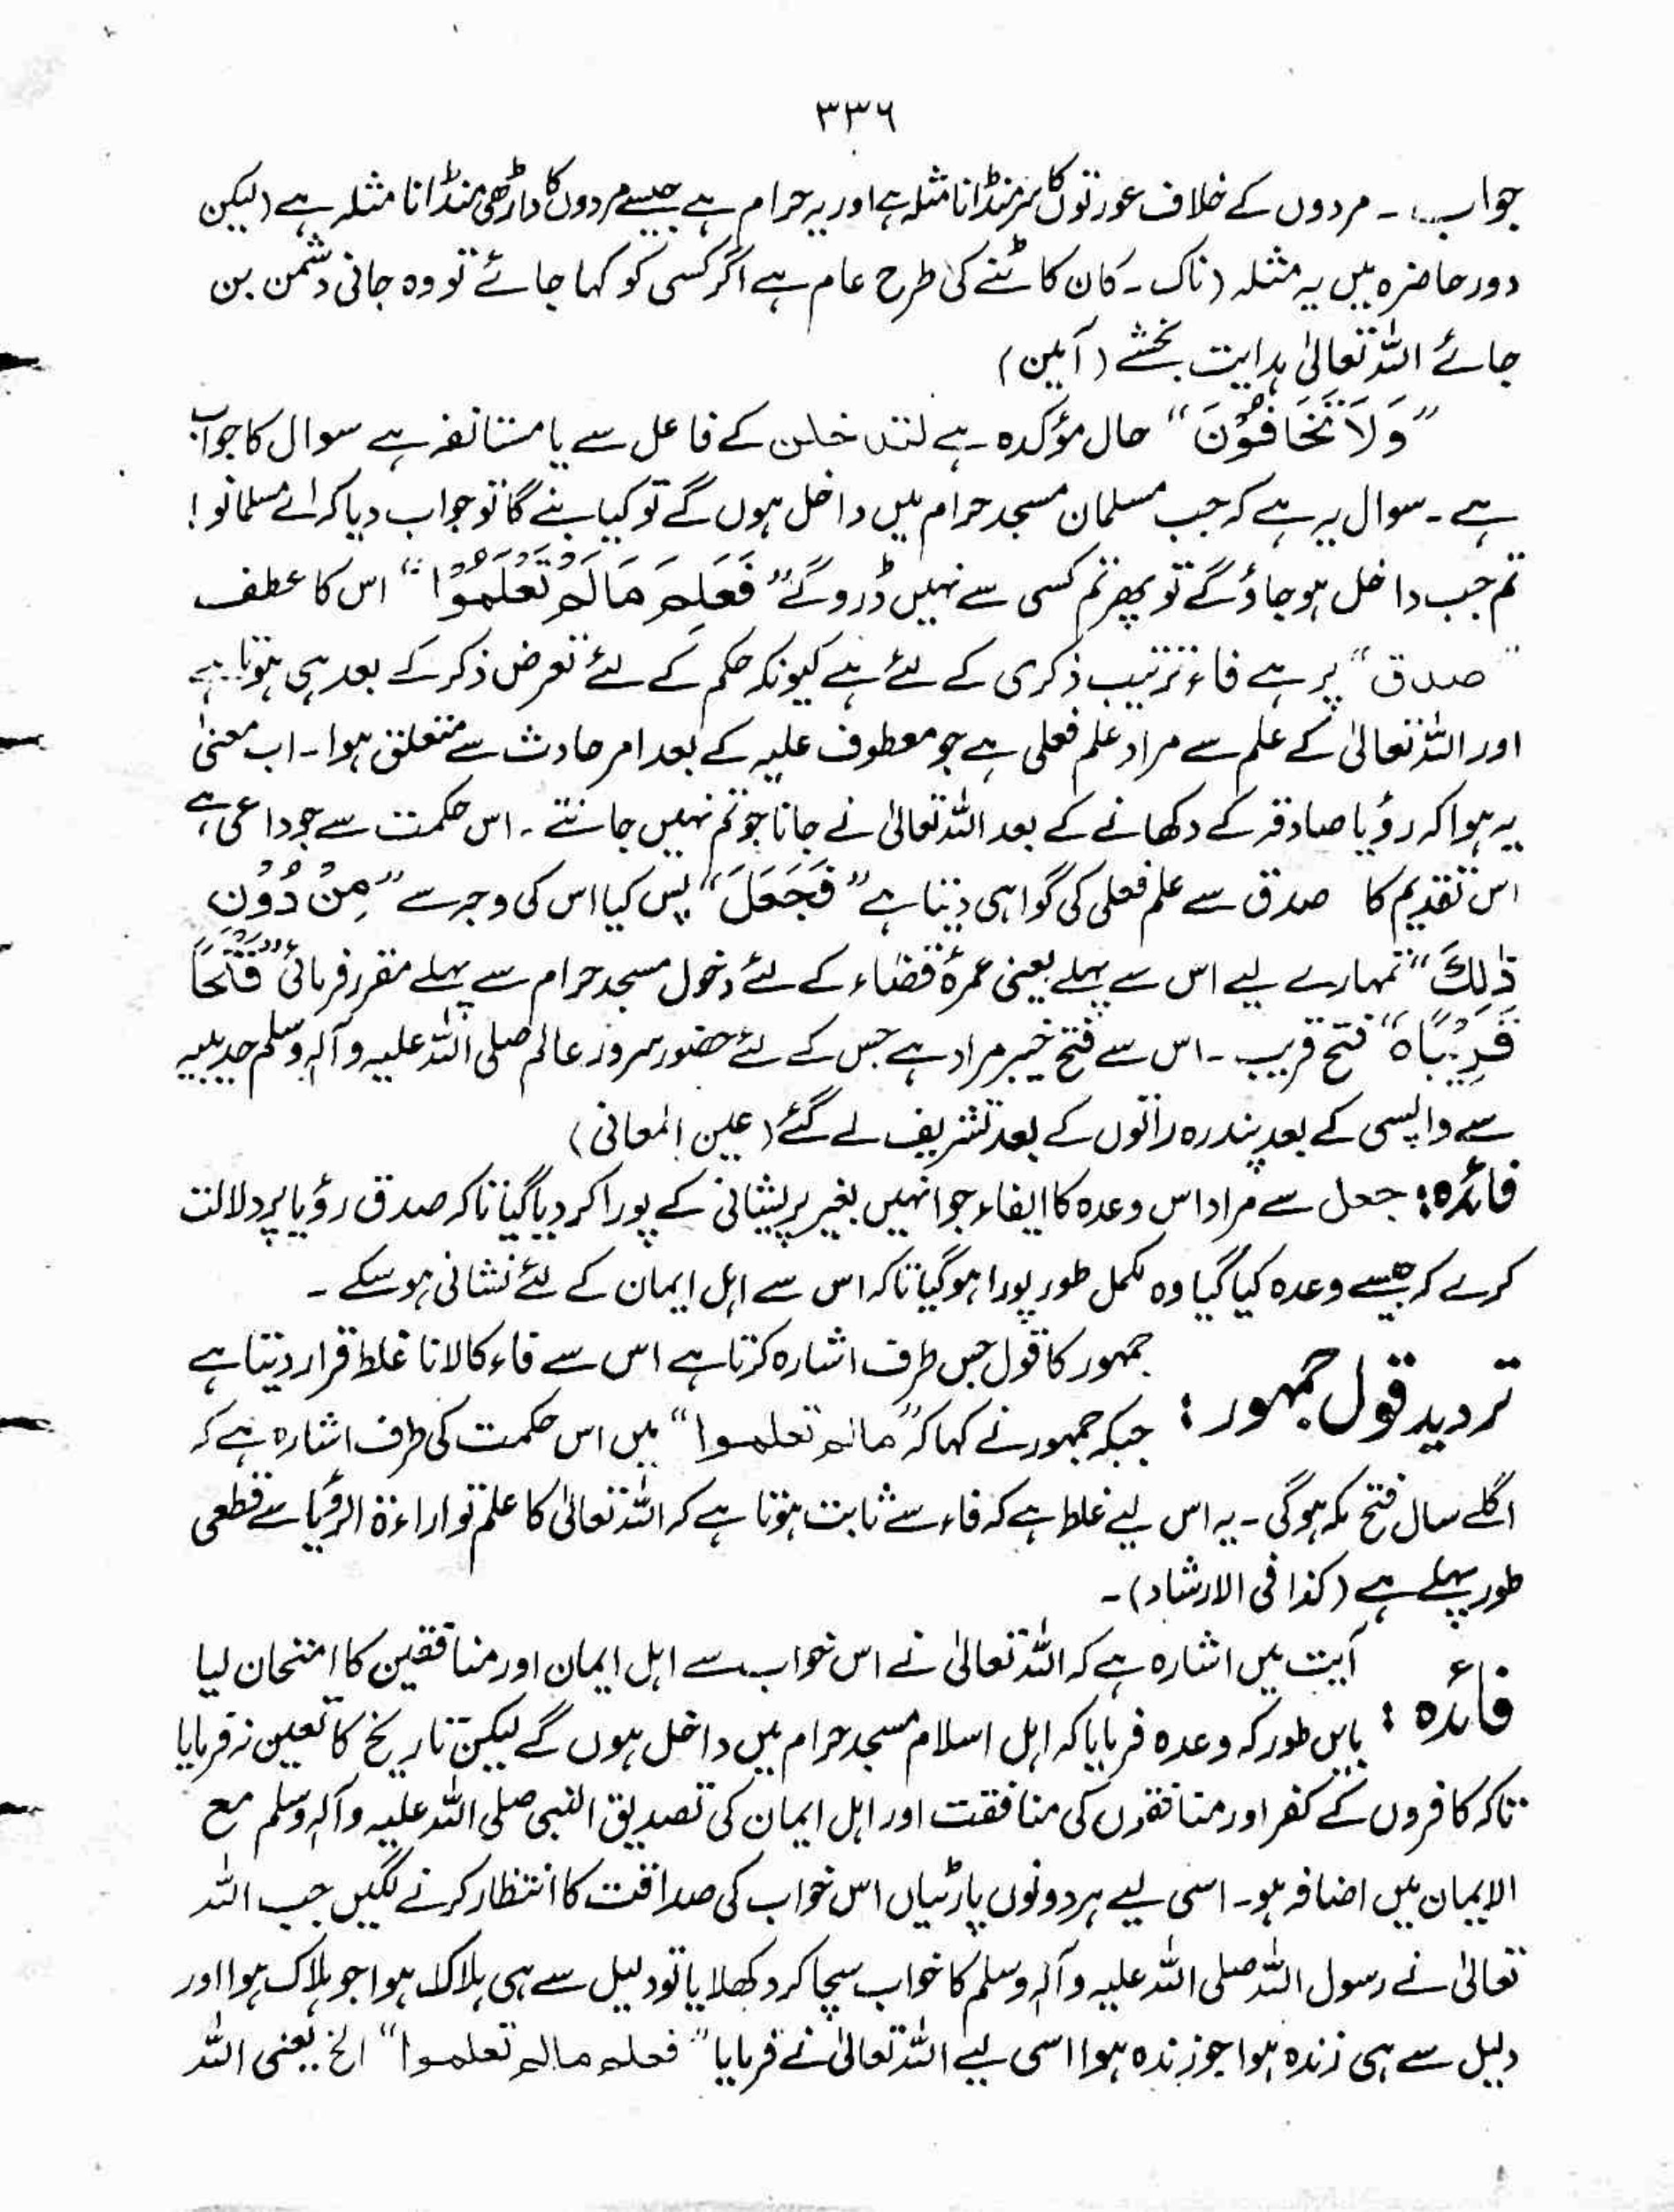 ۳۳۶
جواب ۔ مردوں کے خلاف عورتوں کا سر منڈانا مثلہ ہے اور یہ حرام ہے جیسے مردوں کا داڑھی منڈانا مثلہ ہے (لیکن
دور حاضرہ میں یہ مثلہ (ناک ۔ کان کاٹنے کی طرح عام ہے اگر کسی کو کہا جائے تو وہ جانی دشمن بن
جائے اللہ تعالیٰ ہدایت بخشے (آمین)
”وَلَا تَخَافُوْنَ“ حال مؤکدہ ہے لتدخلن کے فاعل سے یا مستانفہ ہے سوال کا جواب
ہے ۔ سوال یہ ہے کہ جب مسلمان مسجد حرام میں داخل ہوں گے تو کیا بنے گا تو جواب دیا کہ اے مسلمانو!
تم جب داخل ہو جاؤ گے تو پھر تم کسی سے نہیں ڈرو گے ”فَعَلِمَ مَا لَمْ تَعْلَمُوْا“ اس کا عطف
”صدق“ پر ہے فاء ترتیب ذکری کے لئے ہے کیونکہ حکم کے لئے تعرض ذکر کے بعد ہی ہوتا ہے
اور اللہ تعالیٰ کے علم سے مراد علم فعلی ہے جو معطوف علیہ کے بعد امر حادث سے متعلق ہوا ۔ اب معنیٰ
یہ ہوا کہ رؤیا صادقہ کے دکھانے کے بعد اللہ تعالیٰ نے جانا جو تم نہیں جانتے ۔ اس حکمت سے جو داعی ہے
اس تقدیم کا صدق سے علم فعلی کی گواہی دیتا ہے ”فَجَعَلَ“ پس کیا اس کی وجہ سے ”مِنْ دُوْنِ
ذٰلِكَ“ تمہارے لیے اس سے پہلے یعنی عمرۂ قضاء کے لئے دخول مسجد حرام سے پہلے مقرر فرمائی ”فَتْحًا
قَرِیْبًاہ“ فتح قریب ۔ اس سے فتح خیبر مراد ہے جس کے لئے حضور سرور عالم صلی اللہ علیہ وآلہ وسلم حدیبیہ
سے واپسی کے بعد پندرہ راتوں کے بعد تشریف لے گئے (عین المعانی)
فائدہ : جعل سے مراد اس وعدہ کا ایفاء جو انہیں بغیر پریشانی کے پورا کر دیا گیا تاکہ صدق رؤیا پر دلالت
کرے کہ جیسے وعدہ کیا گیا وہ مکمل طور پورا ہو گیا تاکہ اس سے اہل ایمان کے لئے نشانی ہو سکے ۔
تردید قول جمہور : جمہور کا قول جس طرف اشارہ کرتا ہے اس سے فاء کا لانا غلط قرار دیتا ہے
جبکہ جمہور نے کہا کہ ”مالم تعلموا“ میں اس حکمت کی طرف اشارہ ہے کہ
اگلے سال فتح مکہ ہو گی ۔ یہ اس لیے غلط ہے کہ فاء سے ثابت ہوتا ہے کہ اللہ تعالیٰ کا علم تو اراءۃ الرؤیا سے قطعی
طور پہلے ہے (کذا فی الارشاد) ۔
فائدہ : آیت میں اشارہ ہے کہ اللہ تعالیٰ نے اس خواب سے اہل ایمان اور منافقین کا امتحان لیا
بایں طور کہ وعدہ فرمایا کہ اہل اسلام مسجد حرام میں داخل ہوں گے لیکن تاریخ کا تعین نہ فرمایا
تاکہ کافروں کے کفر اور منافقوں کی منافقت اور اہل ایمان کی تصدیق النبی صلی اللہ علیہ وآلہ وسلم مع
الایمان میں اضافہ ہو ۔ اسی لیے ہر دونوں پارٹیاں اس خواب کی صداقت کا انتظار کرنے لگیں جب اللہ
تعالیٰ نے رسول اللہ صلی اللہ علیہ وآلہ وسلم کا خواب سچا کر دکھلایا تو دلیل سے ہی ہلاک ہوا جو ہلاک ہوا اور
دلیل سے ہی زندہ ہوا جو زندہ ہوا اسی لیے اللہ تعالیٰ نے فرمایا ”فعلم مالم تعلموا“ الخ یعنی اللہ